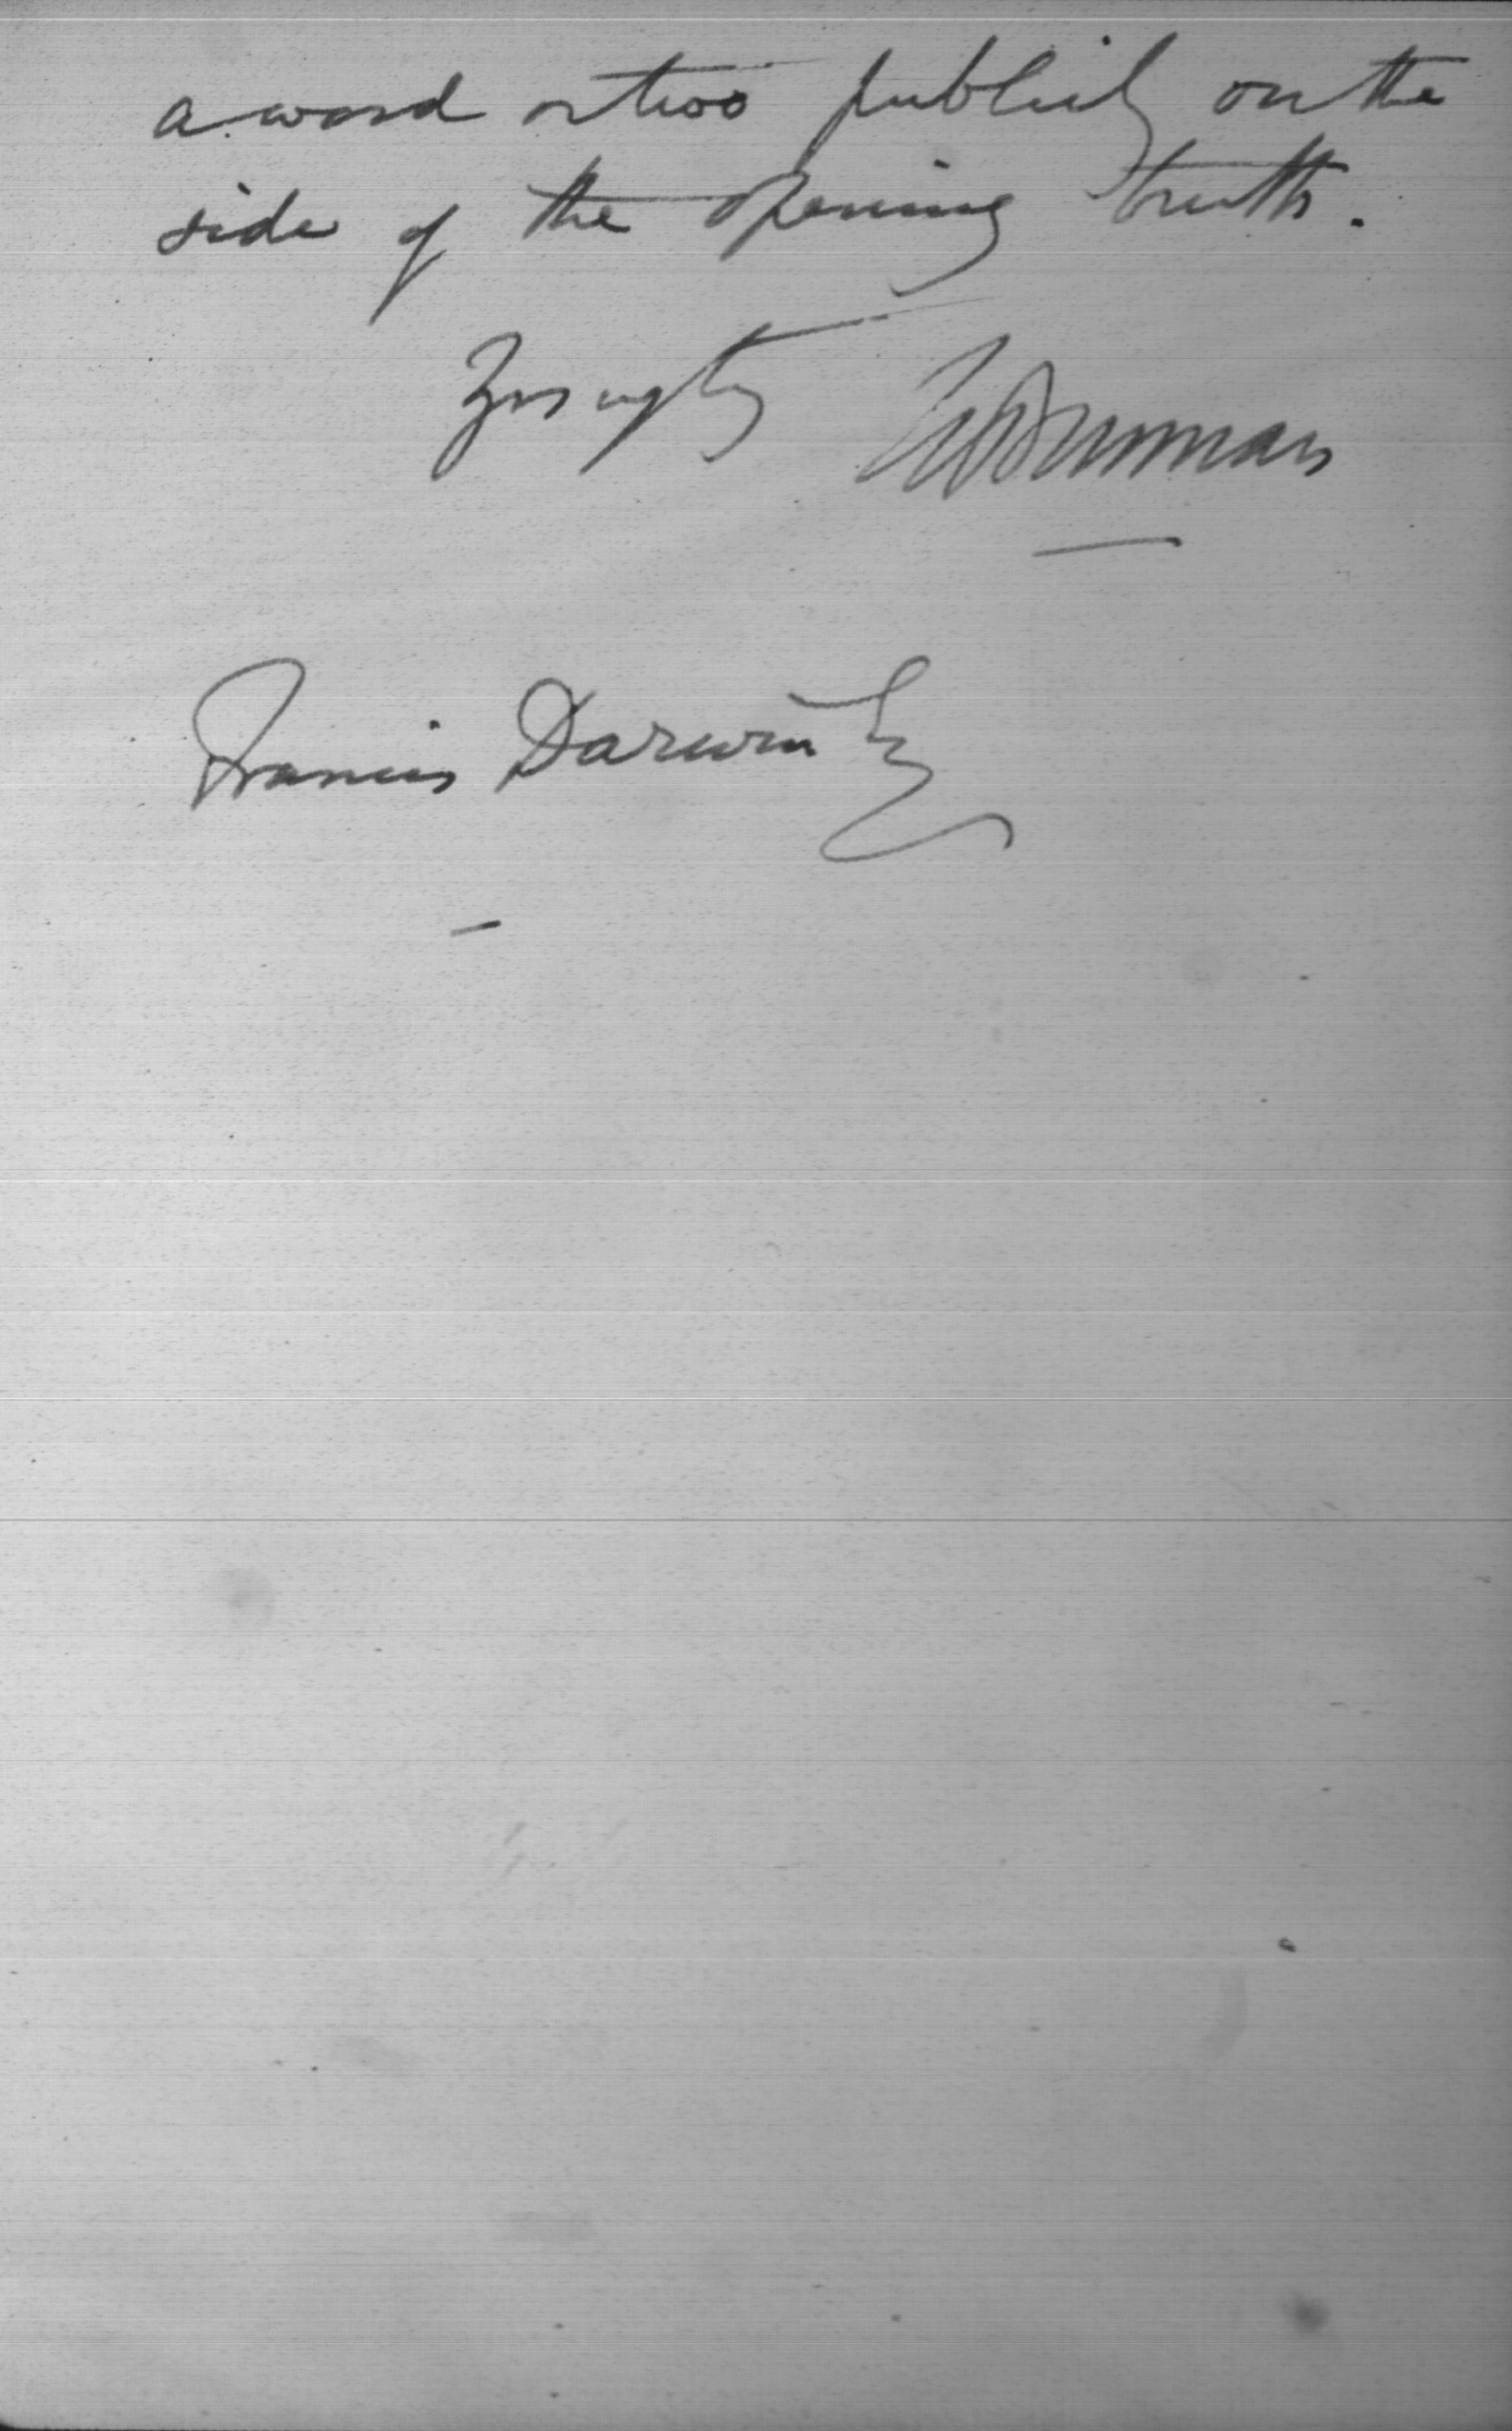 a word or two publicly on the
side of the opening truth.
Yrs
Francis Darwin Esq